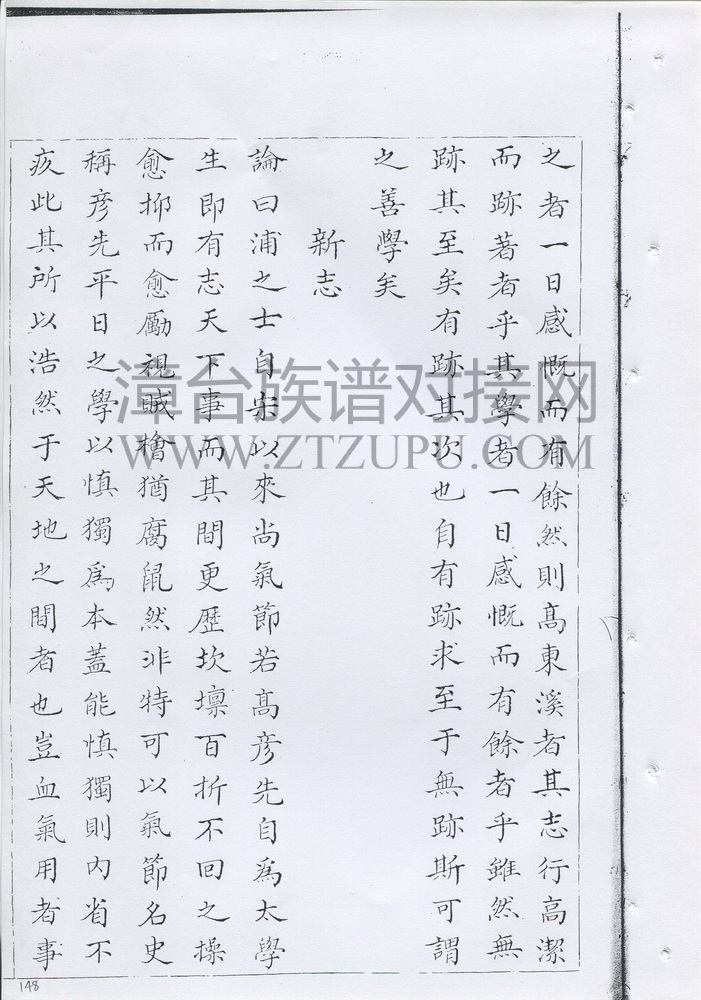 之者一日感慨而有餘然則高東溪者其志行高潔
而跡著者乎其學者一日感慨而有餘者乎雖然無
跡其至矣有跡其次也自有跡求至于無跡斯可謂
之善學矣
新志
論曰浦之士自宋以來尚氣節若高彥先自為太學
生即有志天下事而其間更歷坎壈百折不回之操
愈抑而愈勵視賊檜猶腐鼠然非特可以氣節名史
稱彥先平日之學以慎獨為本蓋能慎獨則內省不
疚此其所以浩然于天地之間者也豈血氣用者事
漳台族谱对接网
WWW.ZTZUPU.COM
148